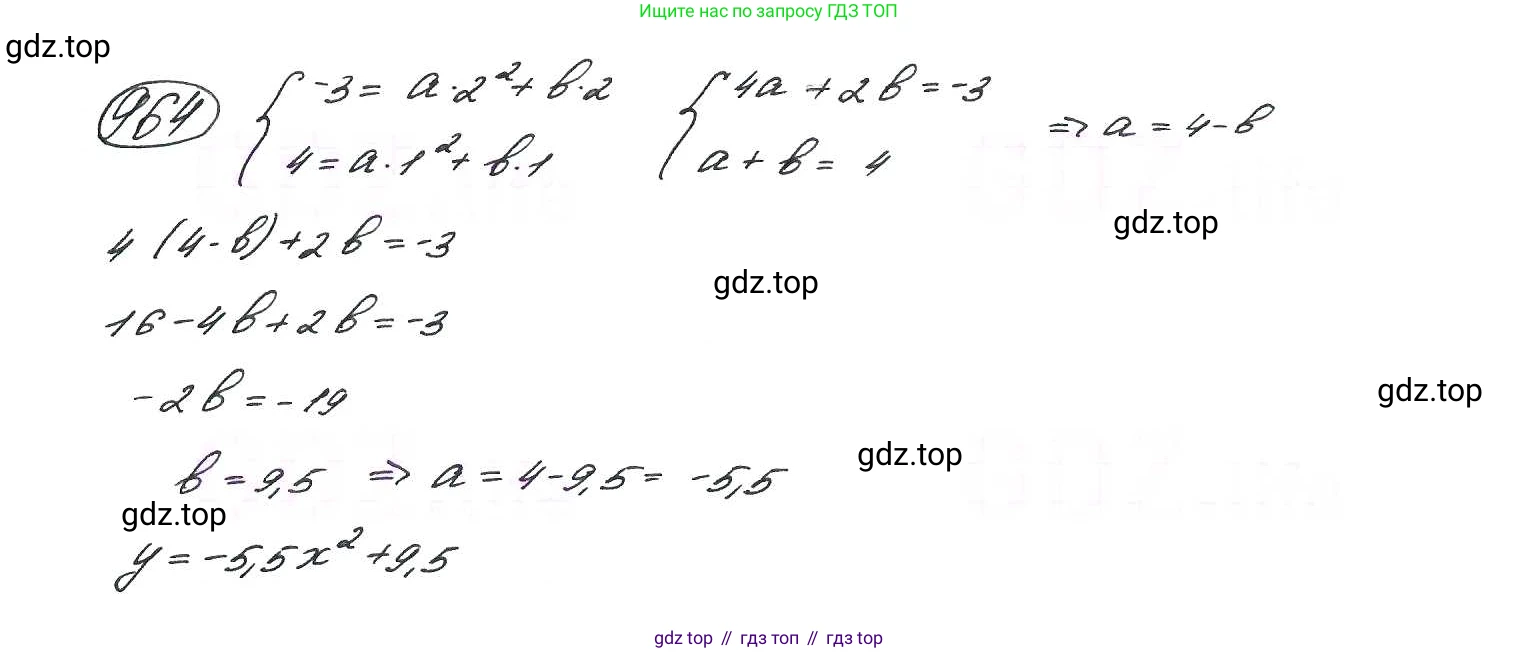 Ищите нас по запросу ГДЗ ТОП
gdz.top
964 { -3 = a·2² + b·2 { 4a + 2b = -3
4 = a·1² + b·1 a + b = 4 ⇒ a = 4 - b
gdz.top
4(4-b)+2b = -3
gdz.top
16-4b+2b = -3
-2b = -19
gdz.top
b = 9,5 ⇒ a = 4-9,5 = -5,5
gdz.top
gdz.top
y = -5,5x² + 9,5
gdz top // гдз топ // гдз top